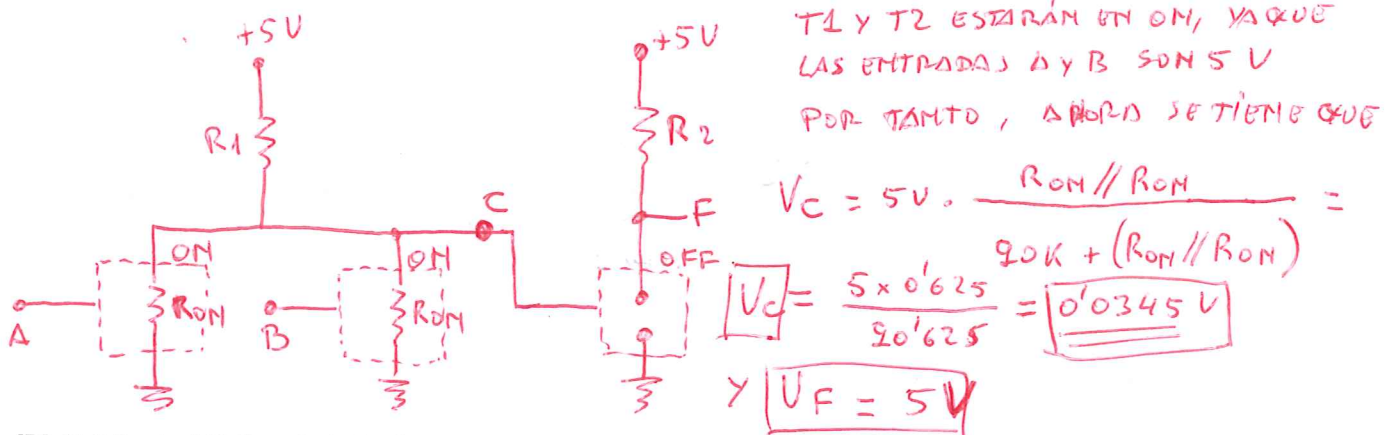 +5V
R1
ON
ON
RON
RON
A
B
C
+5V
R2
F
OFF
T1 Y T2 ESTARÁN EN ON, YA QUE
LAS ENTRADAS A y B SON 5 V
POR TANTO, AHORA SE TIENE QUE
VC = 5V. RON//RON / 90K + (RON//RON) =
VC = 5 x 0'625 / 90'625 = 0'0345 V
Y VF = 5V